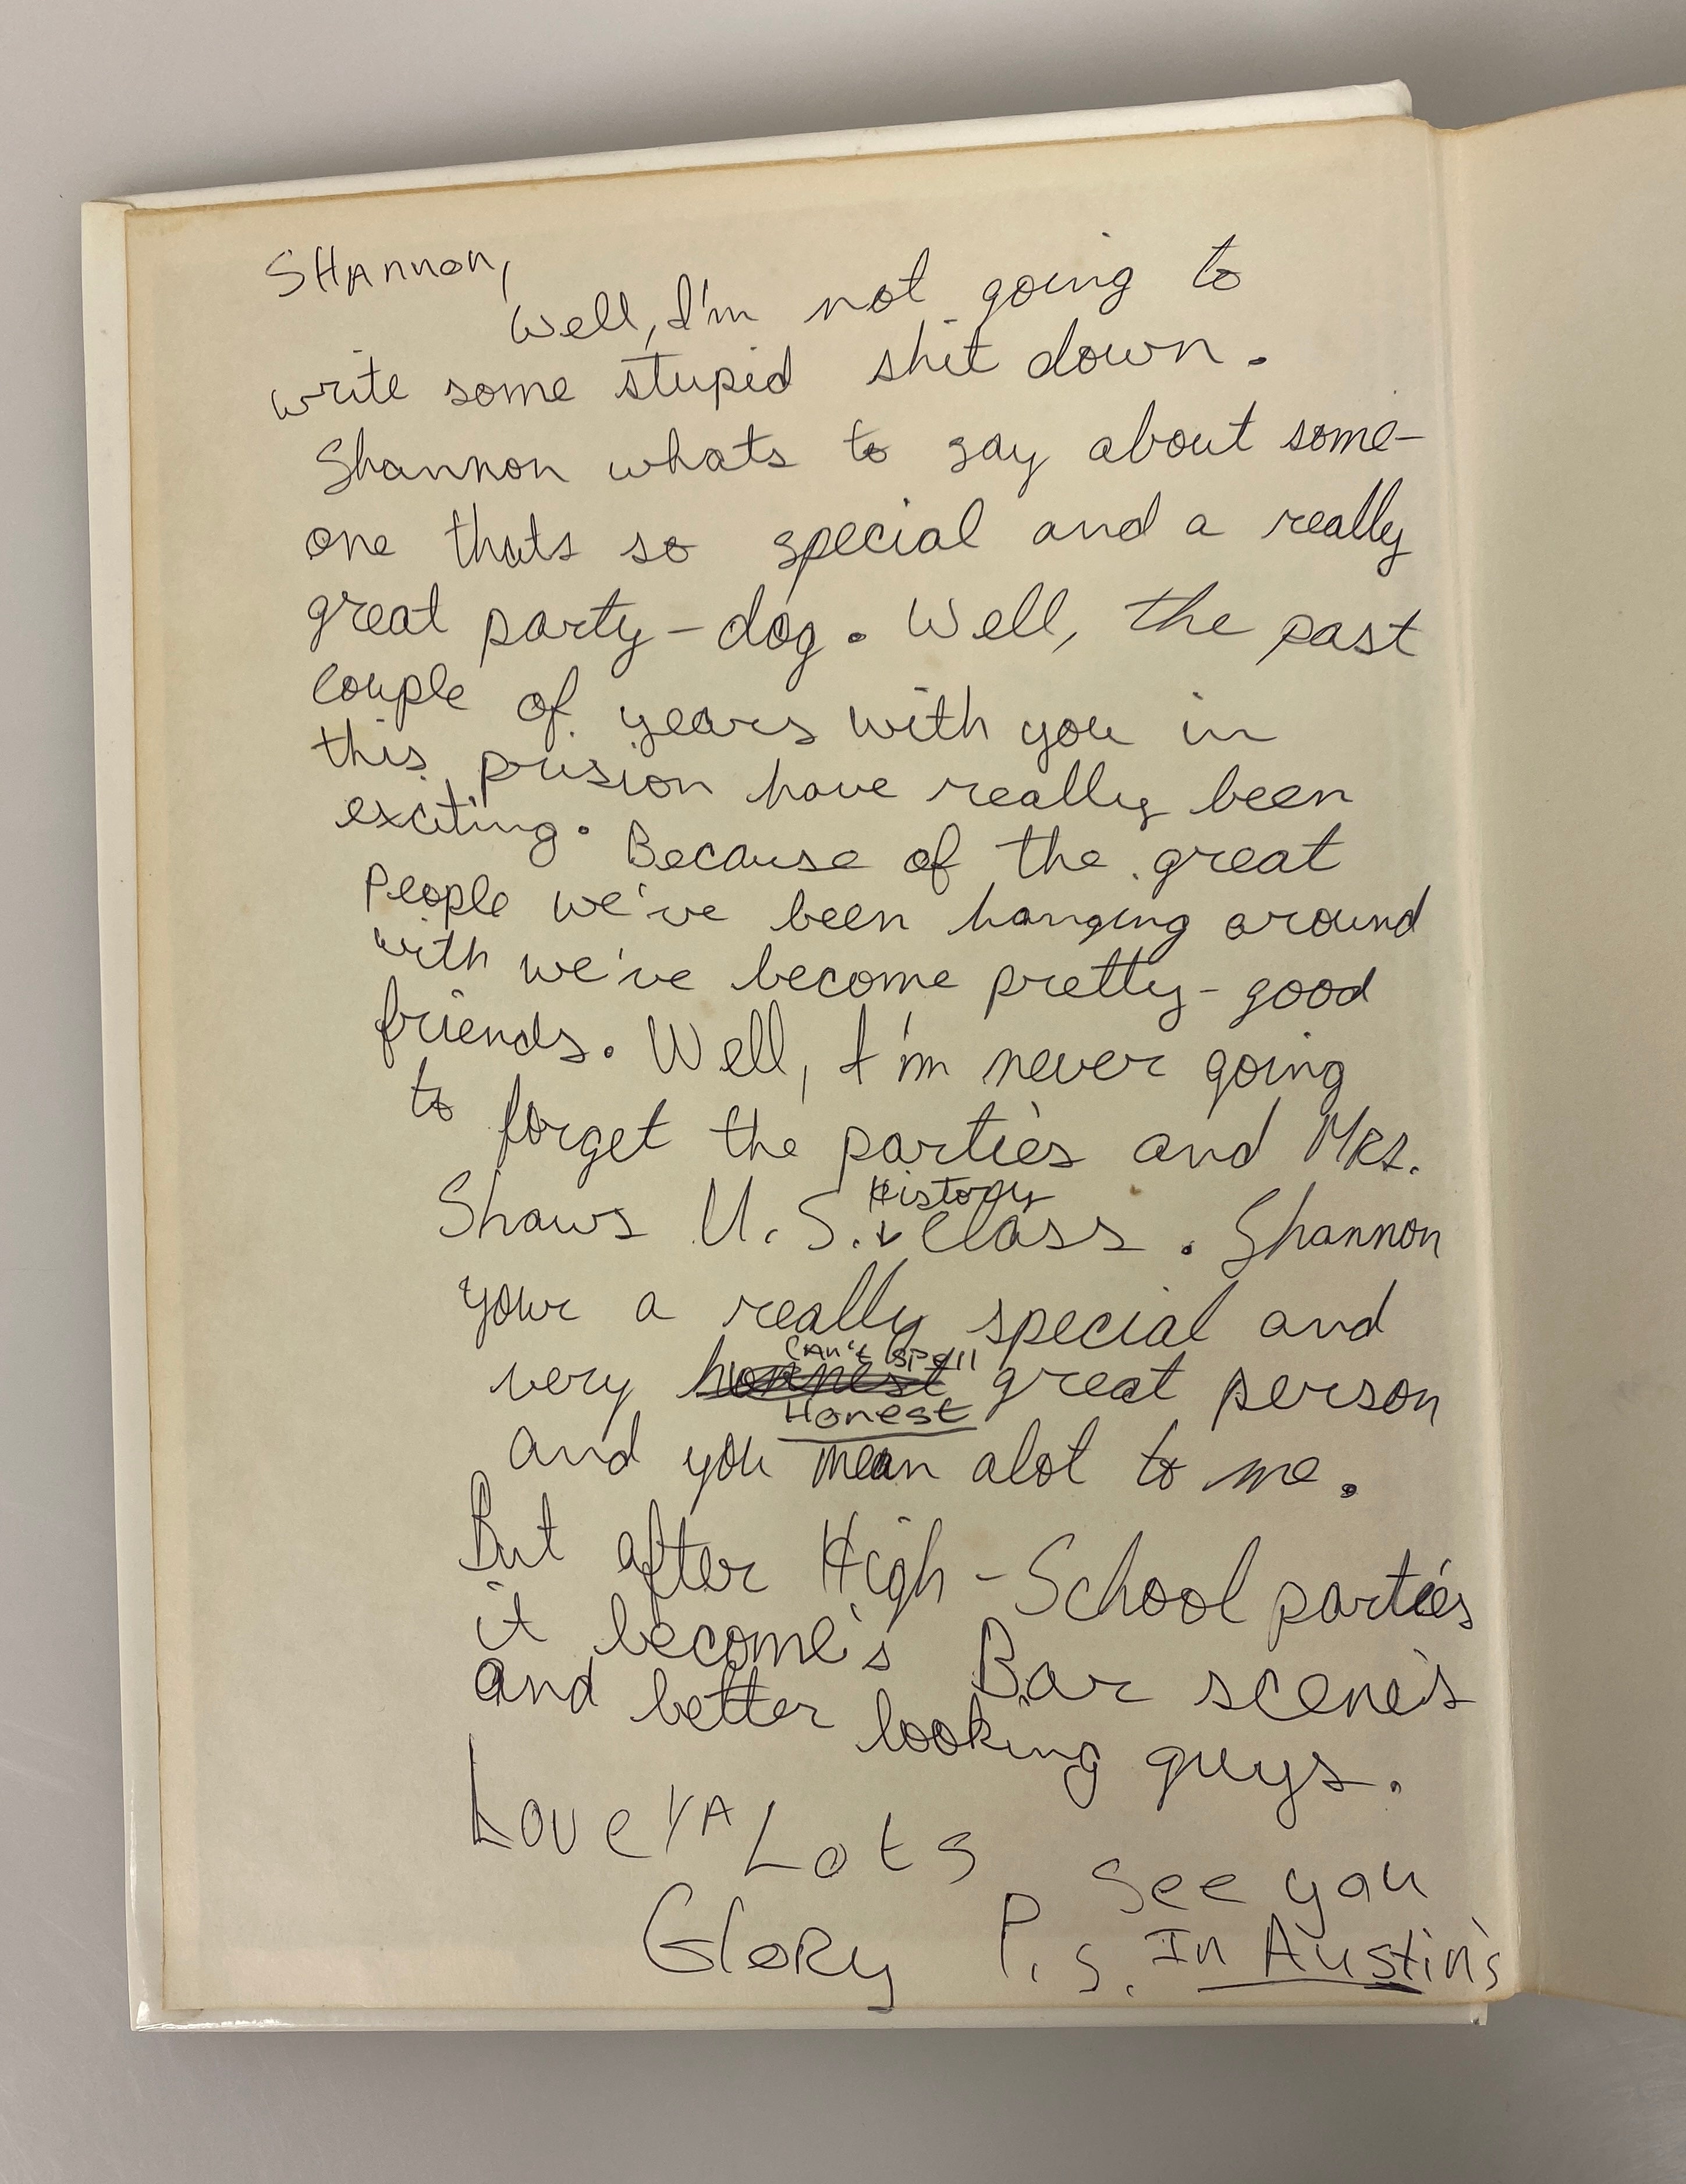 SHannon,
Well, I'm not going to
write some stupid shit down.
Shannon whats to say about some-
one thats so special and a really
great party-dog. Well, the past
couple of years with you in
this prision have really been
exciting. Because of the great
People we've been hanging around
with we've become pretty-good
friends. Well, I'm never going
to forget the parties and MRs.
Shaws U.S. History Class. Shannon
your a really special and
can't spell
very honnest great person
Honest
and you mean alot to me.
But after High-School parties
it become's Bar scene's
and better looking guys.
Love YA Lots
Glory
P.s. See you
In Austin's